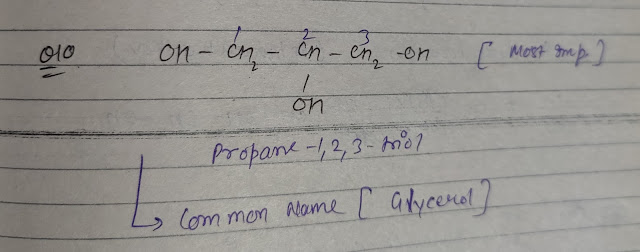 Q10 OH - CH2 - CH - CH2 - OH [ Most Imp ]
1 2 3
|
OH
Propane -1,2,3- triol
→ Common Name [ Glycerol ]